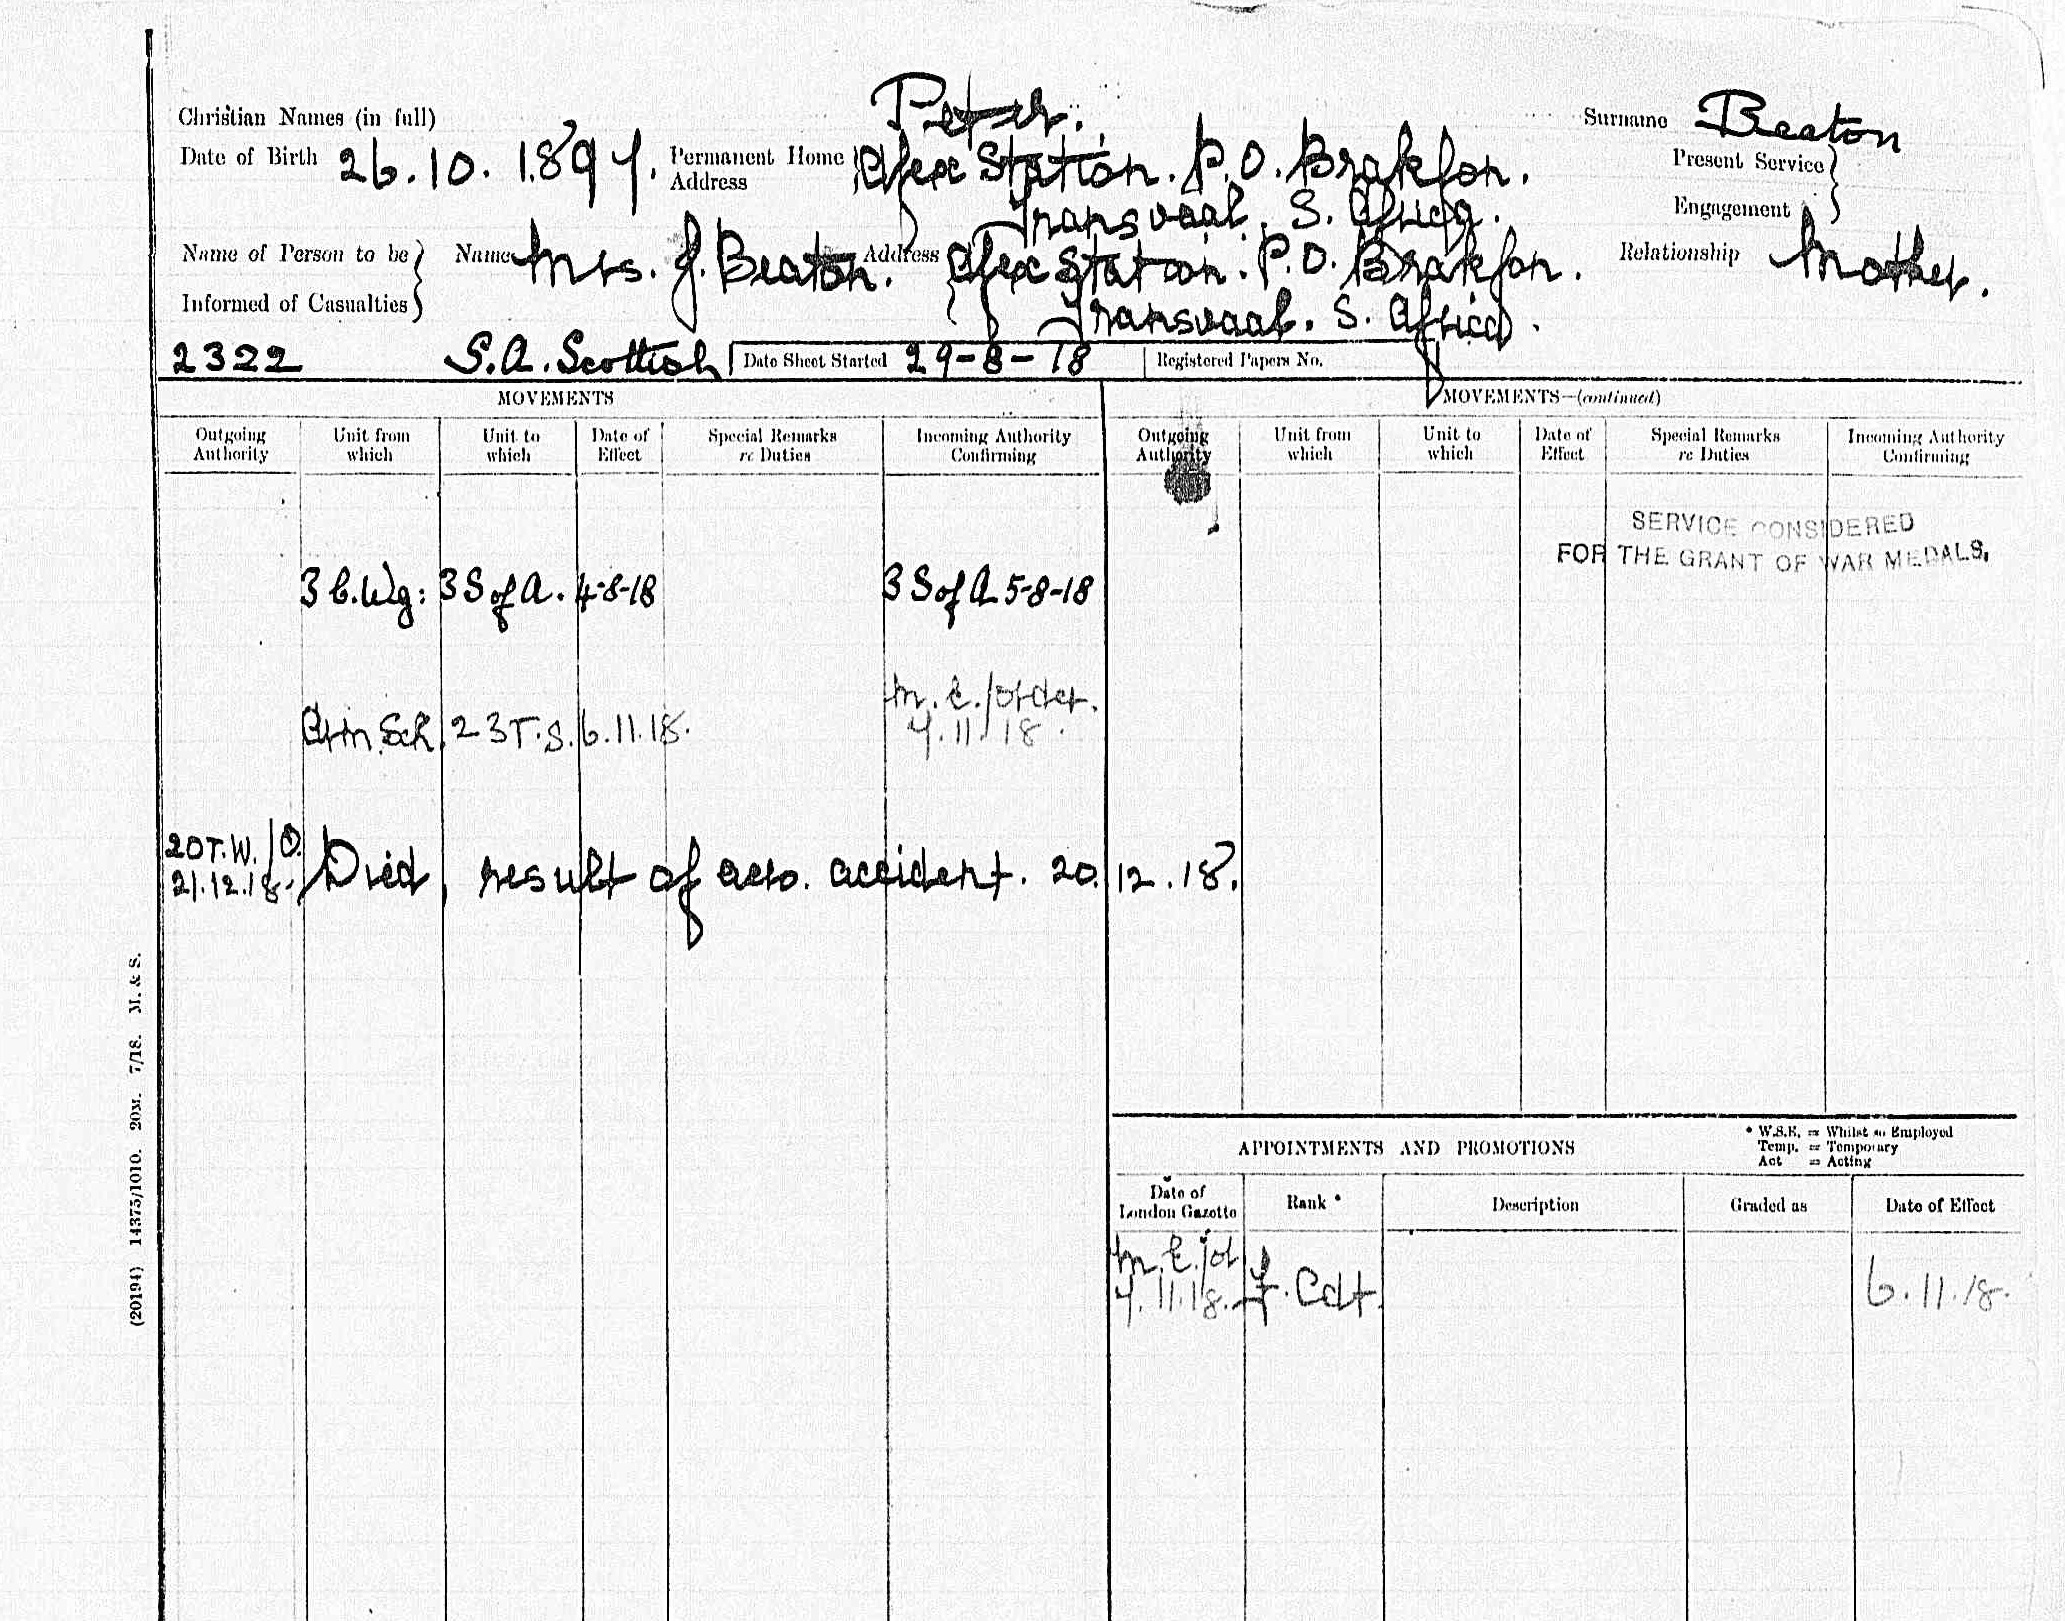 Christian Names (in full) Peter. Surname Beaton
Date of Birth 26.10.1897. Permanent Home Address Apex Station. P.O. Brakfon. Present Service
Transvaal. S. Africa. Engagement
Name of Person to be Informed of Casualties Name Mrs. J. Beaton. Address Apex Station. P.O. Brakfon. Relationship Mother.
Transvaal. S. Africa.
2322 S.A. Scottish Date Sheet Started 29-8-18 Registered Papers No.
MOVEMENTS MOVEMENTS—(continued)
Outgoing Authority Unit from which Unit to which Date of Effect Special Remarks re Duties Incoming Authority Confirming Outgoing Authority Unit from which Unit to which Date of Effect Special Remarks re Duties Incoming Authority Confirming
SERVICE CONSIDERED
FOR THE GRANT OF WAR MEDALS.
3 C.Wg: 3 S of A. 4-8-18 3 S of A 5-8-18
M.E./order.
Arm.Sch. 23 T.S. 6.11.18. 7.11.18.
20 T.W./O.
21.12.18. Died, result of aero. accident. 20.12.18.
APPOINTMENTS AND PROMOTIONS
* W.S.E. = Whilst so Employed
Temp. = Temporary
Act = Acting
Date of London Gazette Rank * Description Graded as Date of Effect
M.E./o
7.11.18. F. Cdt. 6.11.18.
(20194) 14375/1010. 20M. 7/18. M. & S.